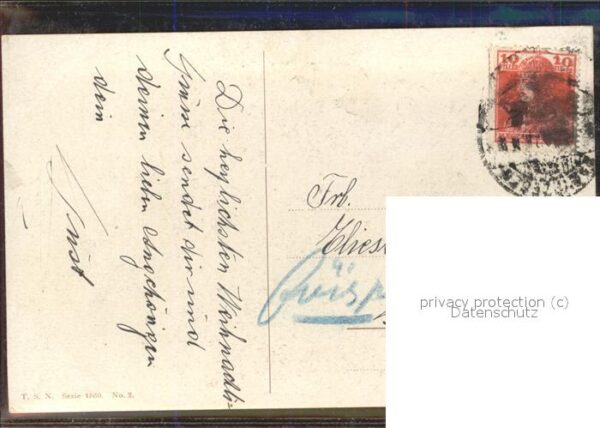 Die herzlichsten Weihnachts-
Grüsse sendet dir und
deinen lieben Angehörigen
dein
Ernst
10 10
Frl.
privacy protection (c)
Datenschutz
T. S. N. Serie 1560. No. 2.